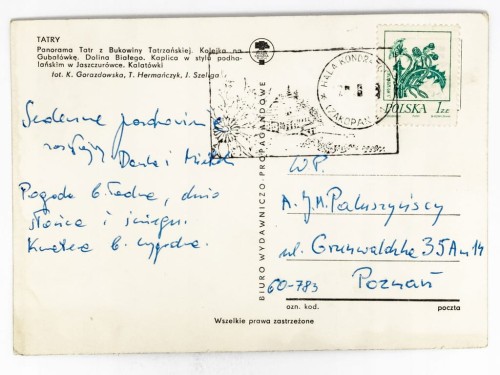 TATRY
Panorama Tatr z Bukowiny Tatrzańskiej. Kolejka na
Gubałówkę. Dolina Białego. Kaplica w stylu podha-
lańskim w Jaszczurówce. Kalatówki
fot. K. Gorazdowska, T. Hermańczyk, J. Szeliga
Serdeczne pozdrowienia
Danka i
Pogoda b. ładna, dużo
słońca i śniegu.
Kwatera b. wygodna.
BIURO WYDAWNICZO-PROPAGANDOWE
HALA KONDRATOWA
ZAKOPANE
POLSKA 1 ZŁ
W.P.
A. J. M. Paluszyńscy
ul. Grunwaldzka 35A m 14
60-783 Poznań
ozn. kod. poczta
Wszelkie prawa zastrzeżone